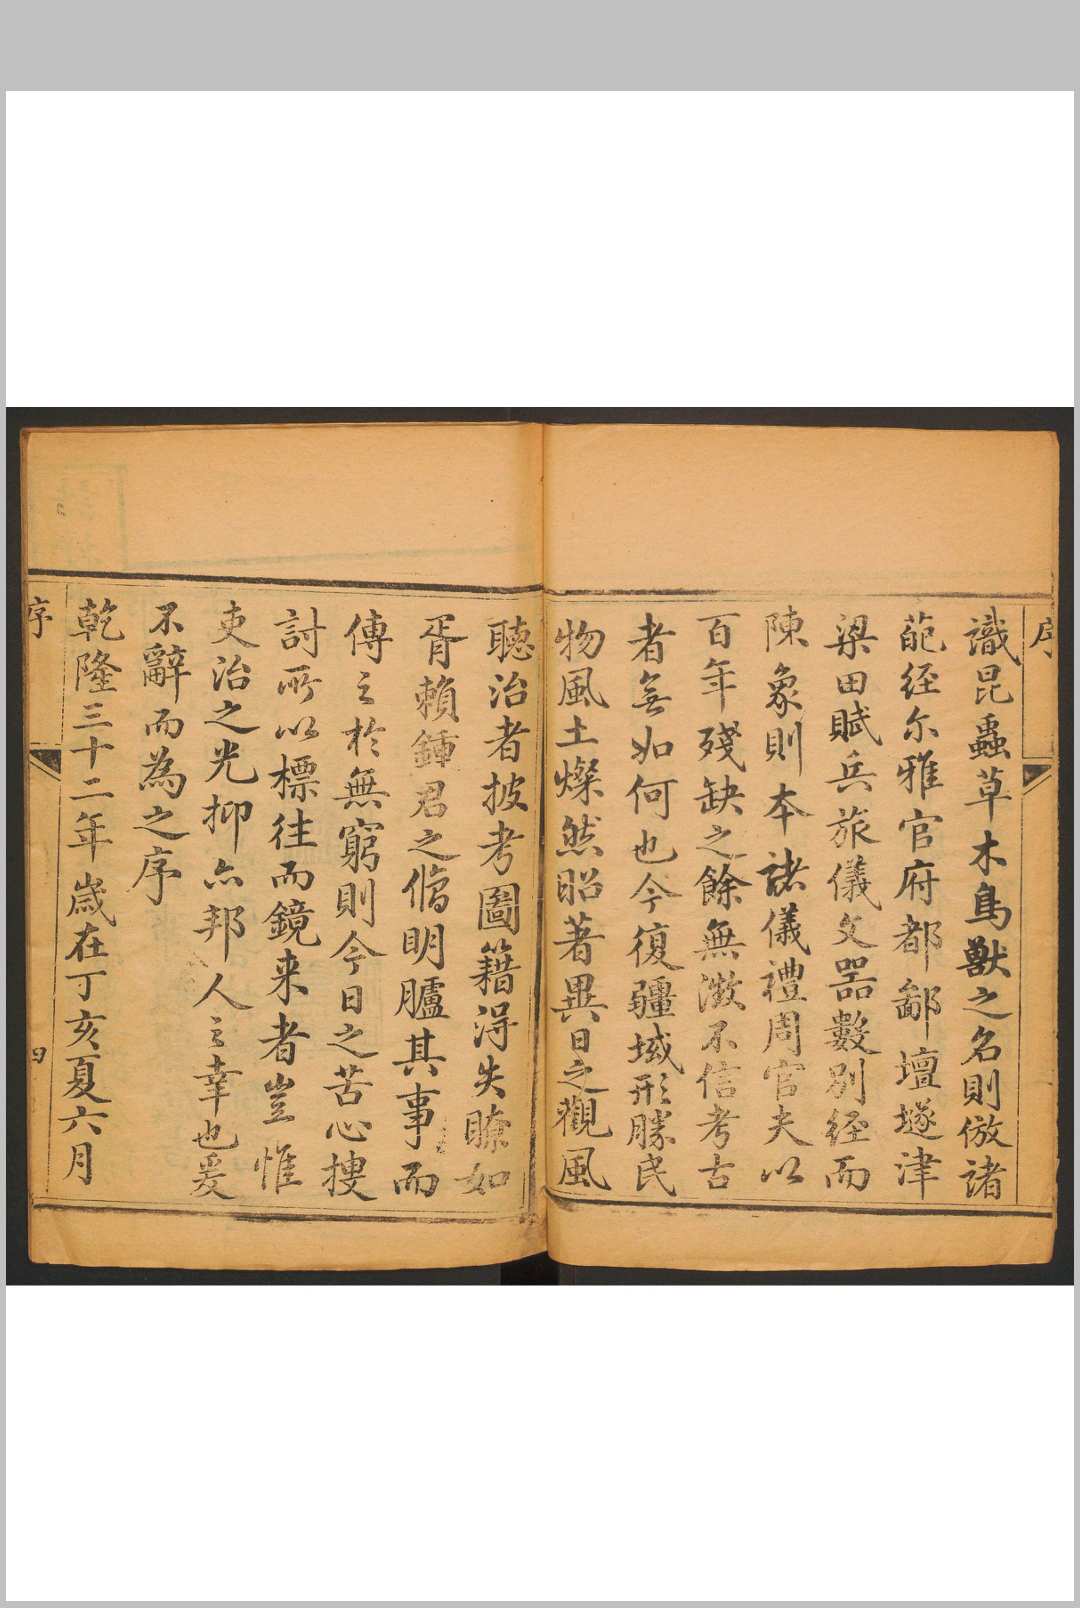 序
識昆蟲草木鳥獸之名則倣諸
葩经尔雅官府都鄙壇墜津
梁田賦兵旅儀文器數別経而
陳象則本諸儀禮周官夫以
百年殘缺之餘無徵不信考古
者無如何也今復疆域形勝民
物風土燦然昭著異日之觀風
聽治者披考圖籍得失瞭如
胥賴鍾君之脩明臚其事而
傳之於無窮則今日之苦心摟
討所以標往而鏡来者豈惟
吏治之光抑亦邦人之幸也爰
不辭而為之序
乾隆三十二年歲在丁亥夏六月
序
四